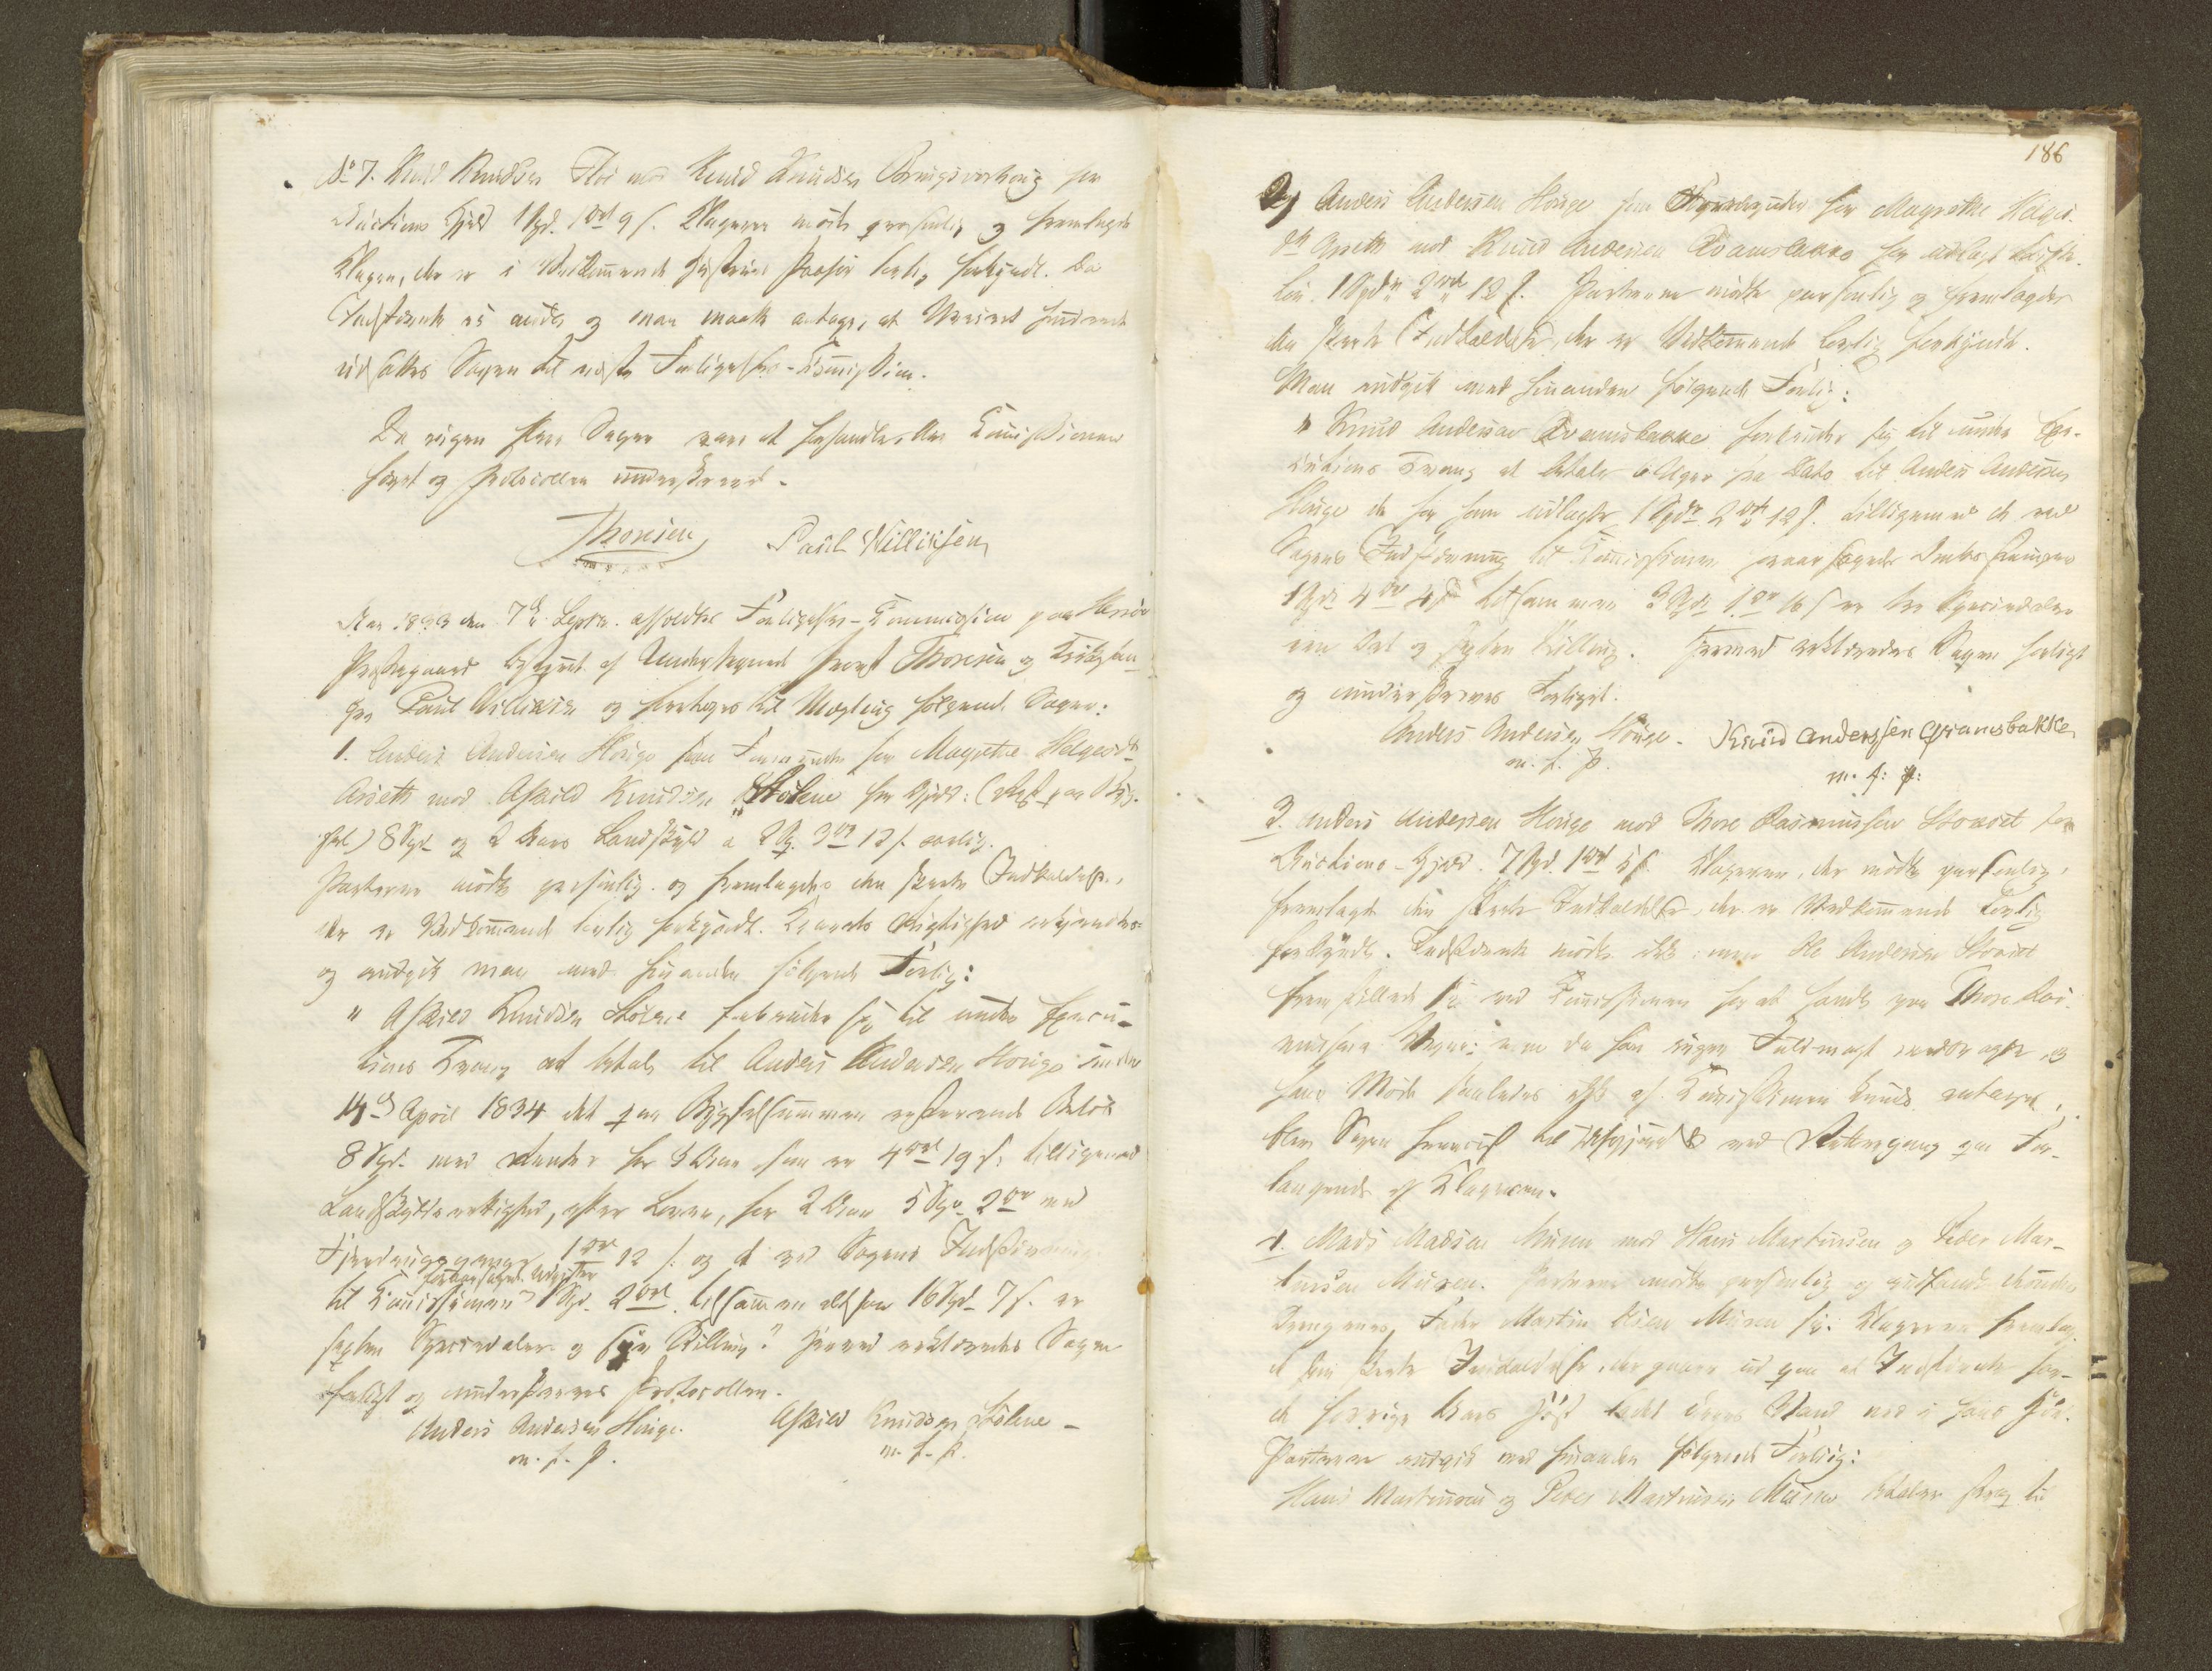 No 7. Knud Knudsen Floe mod Knud Knudsen for
Auctions Gjeld 1 Spd. 1 ort 9 s. Klageren mødte personlig og fremlagde
Klagen, der er i Vedkommende Hustrues Paahør lovlig forkyndt. Da
Indstevnte ei mødte og man maatte antage, at Veiret hindrede
udsattes Sagen til næste Forligelses-Commission.
Da ingen flere Sager vare at behandle, blev Commissionen
hævet og Protocollen underskrevet.
Thoresen Paul Villiksen
Aar 1833 den 7de Septr. afholdtes Forligelses-Commission paa Herrøe
Præstegaard bestyret af Undertegnede Provst Thoresen og
Paul Villiksen og foretoges til Mægling følgende Sager:
1. Anders Andersen Houge som Formynder for Magrethe Helgesdtr
Aaseth mod Askild Knudsen Stølene for Gjeld: (Rest paa Byg-
sel) 8 Spd. og 2 Aars Landskyld a 2 Sp. 3 ort 12 s. aarlig.
Parterne mødte personlig og fremlagdes den skrevne Indkaldelse,
der er Vedkommende lovlig forkyndt. Kravets Rigtighed erkjendtes
og indgik man med hinanden følgende Forlig:
" Askild Knudsen Stølene forbinder sig til under Execu-
tions Tvang at betale til Anders Andersen Houge inden
14de April 1834 det paa Bygselsummen resterende Beløb
8 Spd. med Renter for Aar som er 4 ort 19 s. tilligemed
Landskyld, efter Loven, for 2 Aar 5 Spd. 2 ort med
1 ort 12 s. og de ved Sagens Indstevning
foraarsagede Udgifter
til Commissionen 1 Spd. 2 ort tilsammen altsaa 16 Spd. 7 s. er
sexten Speciedaler og syv Skilling." Hermed erklæredes Sagen
forligt og underskreves Protocollen.
Anders Andersen Houge. Askild Knudsen Stølene
m. f. P. m. f. P.
186
2) Anders Andersen Houge som Formynder for Magrethe Helges-
dtr Aaseth mod Knud Andersen Qvamsbakke for udlagt
1 Spd. 2 ort 12 s. Parterne mødte personlig og fremlagdes
den skrevne Indkaldelse, der er Vedkommende lovlig forkyndt.
Man indgik med hinanden følgende Forlig:
" Knud Andersen Qvamsbakke forbinder sig til under Exe-
cutions Tvang at betale 6 Uger fra Dato til Anders Andersen
Houge de for ham udlagte 1 Spd. 2 ort 12 s. tilligemed de ved
Sagens Indstevning til Commissionen foraarsagede Omkostninger
1 Spd. 4 ort 4 s. tilsammen 3 Spd. 1 ort 16 s. er tre Speciedaler
een Ort og sexten Skilling. Hermed erklæredes Sagen forligt
og underskreves Forliget.
Anders Andersen Houge. Knud Anderssen Qvamsbakke
m. f. P. m: f: P:
3. Anders Andersen Houge mod Thore Rasmussen Storset for
Auctions-Gjeld. 7 Spd. 1 ort 5 s. Klageren, der mødte personlig,
fremlagde den skrevne Indkaldelse, der er Vedkommende lovlig
forkyndt. Indstevnte mødte ikke; men Ole Andersen Storset
fremstillede sig ved Commissionen for at handle paa Thore Ras-
mussens Vegne; men da han ingen Fuldmagt medbragte, og
hans Møde saaledes ikke af Commissionen kunde antages,
blev Sagen henviist til ved Rettergang paa For-
langende af Klageren.
4. Mads Madsen Muren mod Hans Martinsen og Peder Mar-
tinsen Muren. Parterne mødte personlig og indfandt
Drengenes Fader Martin Olsen Muren sig. Klageren fremlag-
de sin skrevne Indkaldelse, der gaaer ud paa at Indstevnte har-
de forrige Aars Høst ladet Vand ned i hans
Parterne indgik med hinanden følgende Forlig:
Hans Martinsen og Peder Martinsen Muren betaler strax til